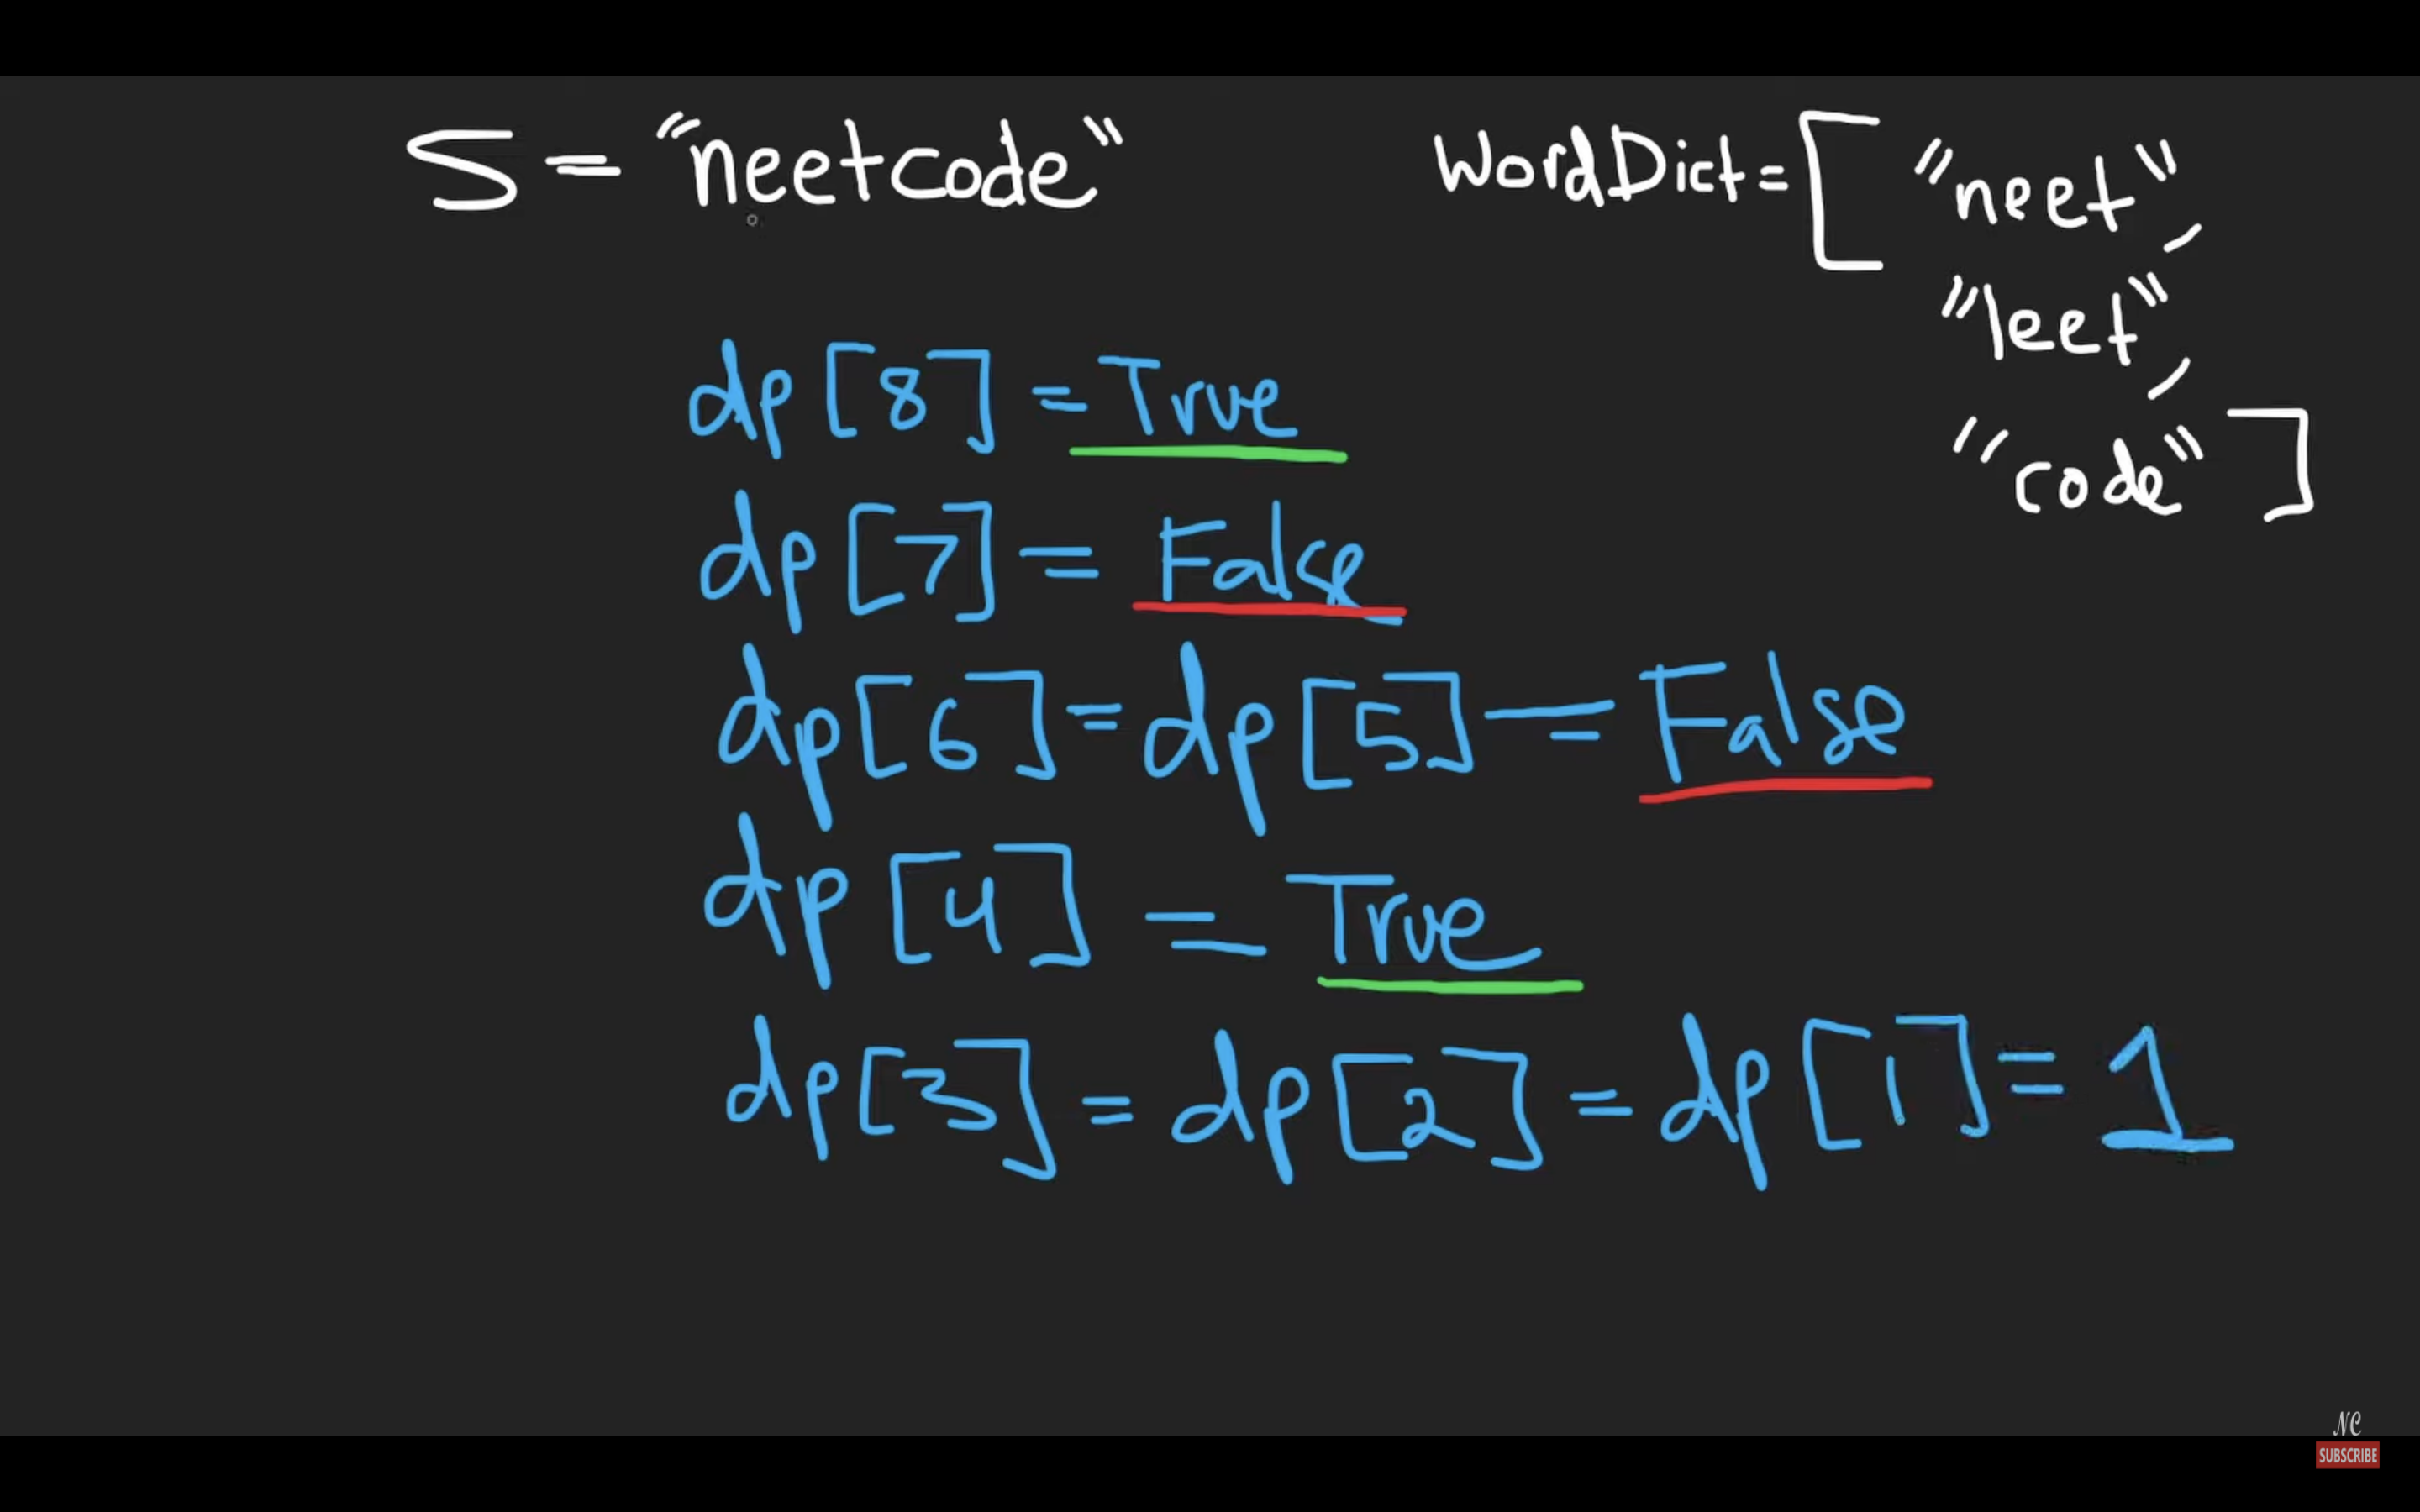 S = "neetcode"
WordDict = [ "neet",
"leet",
"code" ]
dp[8] = True
dp[7] = False
dp[6] = dp[5] = False
dp[4] = True
dp[3] = dp[2] = dp[1] = 1
NC
SUBSCRIBE